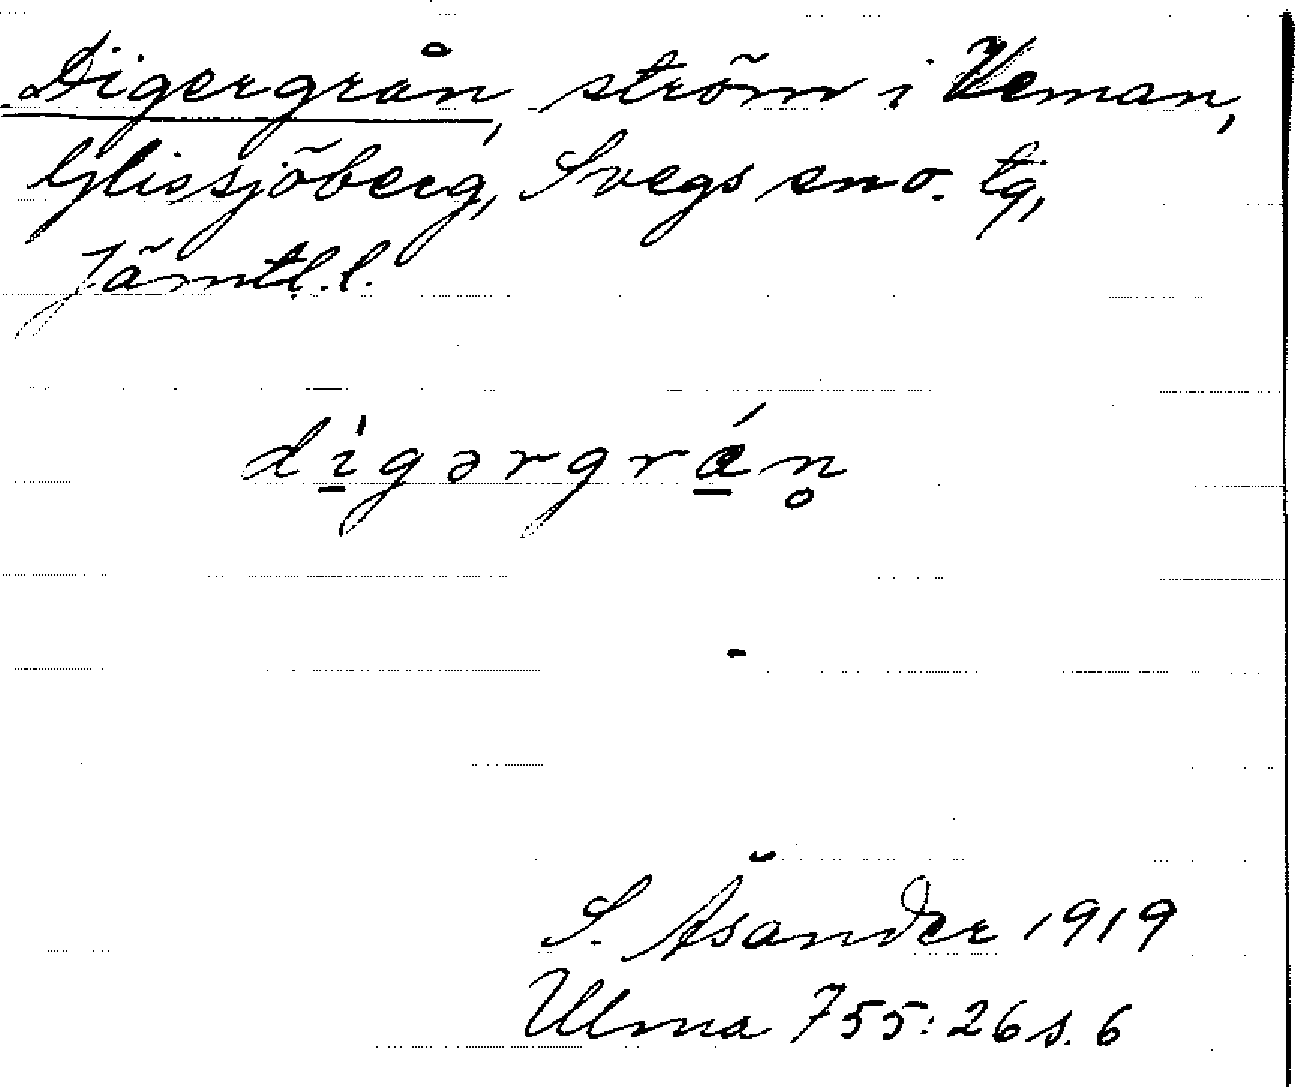 Digergrån, ström i Veman,
Glissjöberg, Svegs sno. tg,
Jämtl.l.
dígərgrán̥
S. Åsander 1919
Ulma 755:26 s. 6